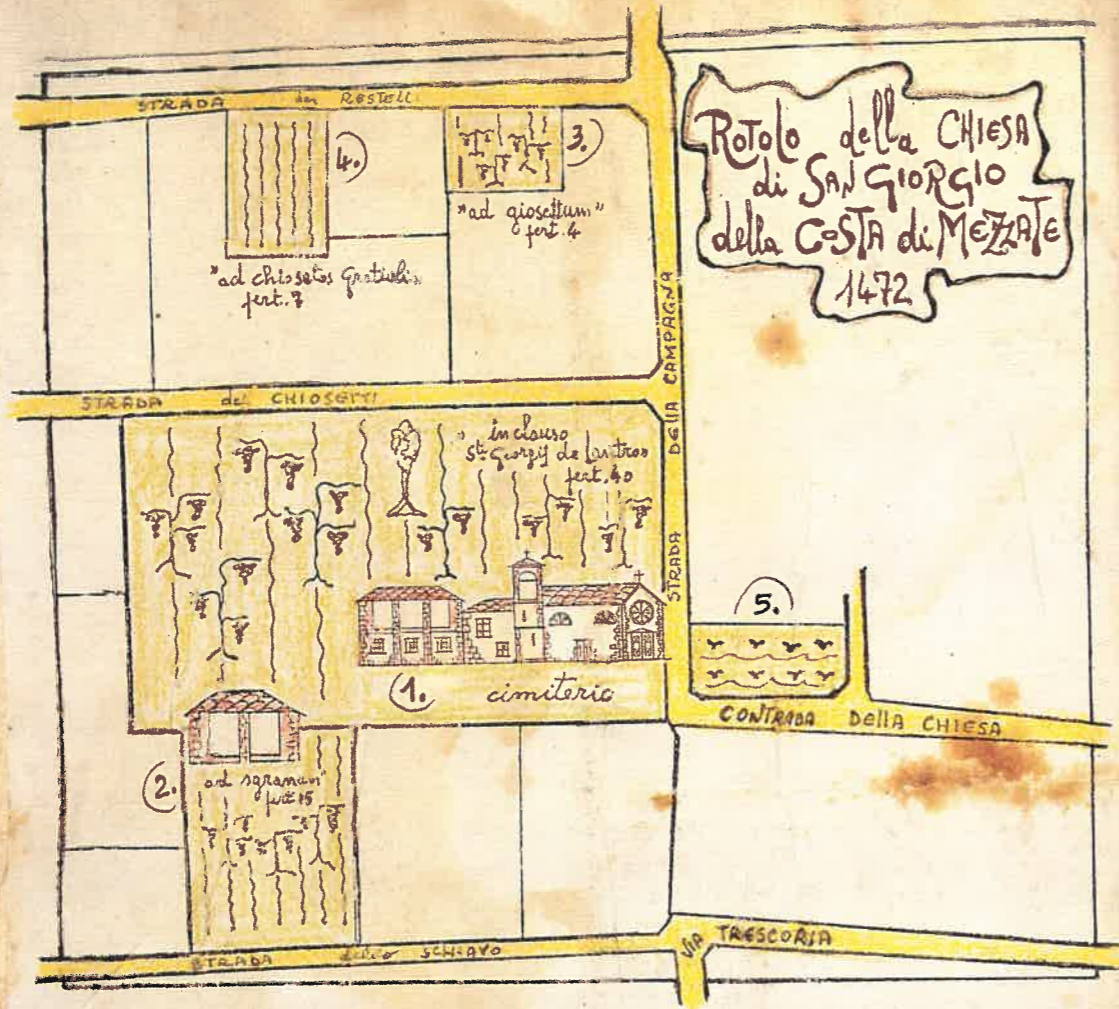 STRADA dei RESTELLI
Rotolo della CHIESA
di SAN GIORGIO
della COSTA di MEZZATE
1472
4.
3.
"ad giosettum"
pert. 4
"ad chiosetos
pert. 7
STRADA DELLA CAMPAGNA
STRADA dei CHIOSETTI
in clauso
Sti Georgij de
pert. 40
5.
1.
cimiterio
CONTRADA DELLA CHIESA
2.
ad sgranum"
pert 15
STRADA dello SCHIAVO
VIA TRESCORIA